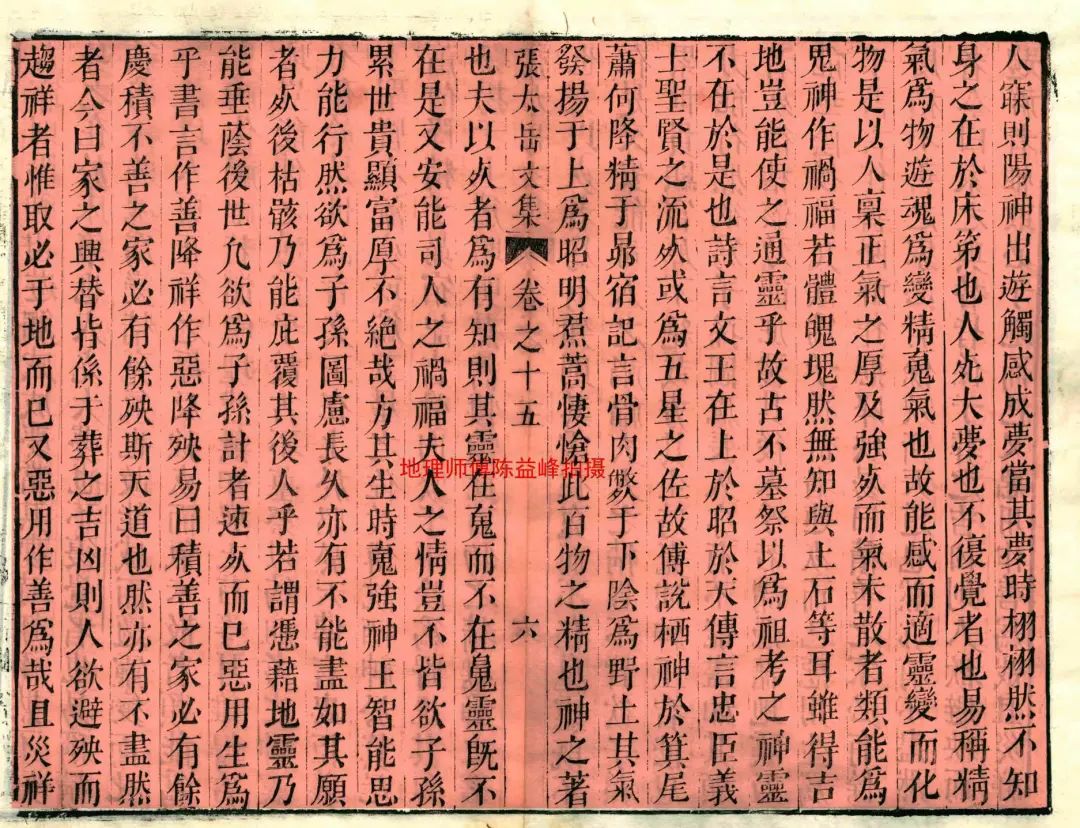 人寐則陽神出遊觸感成夢當其夢時栩栩然不知
身之在於床第也人夗大夢也不復覺者也易稱精
氣爲物遊魂爲變精䰟氣也故能感而適靈變而化
物是以人稟正氣之厚及強夗而氣未散者類能爲
鬼神作禍福若體魄塊然無知與土石等耳雖得吉
地豈能使之通靈乎故古不墓祭以爲祖考之神靈
不在於是也詩言文王在上於昭於天傳言忠臣義
士聖賢之流夗或爲五星之佐故傅說栖神於箕尾
蕭何降精于昴宿記言骨肉斃于下陰爲野土其氣
發揚于上爲昭明焄蒿悽愴此百物之精也神之著
張太岳文集 卷之十五 六
也夫以夗者爲有知則其靈在䰟而不在鼻靈旣不
在是又安能司人之禍福夫人之情豈不皆欲子孫
累世貴顯富厚不絶哉方其生時䰟強神王智能思
力能行然欲爲子孫圖慮長久亦有不能盡如其願
者夗後枯骸乃能庇覆其後人乎若謂憑藉地靈乃
能垂蔭後世凢欲爲子孫計者速夗而已惡用生爲
乎書言作善降祥作惡降殃易曰積善之家必有餘
慶積不善之家必有餘殃斯天道也然亦有不盡然
者今曰家之興替皆係于葬之吉凶則人欲避殃而
趨祥者惟取必于地而已又惡用作善爲哉且災祥
地理师傅陈益峰拍摄